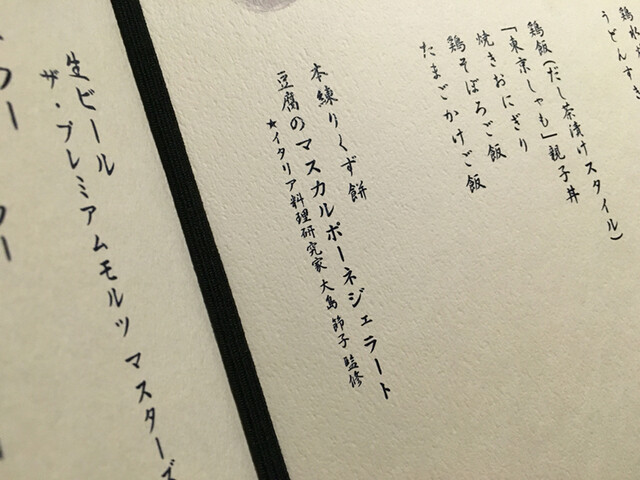 うどんすき
鶏飯(だし茶漬けスタイル)
「東京しゃも」親子丼
焼きおにぎり
鶏そぼろご飯
たまごかけご飯
本練りくず餅
豆腐のマスカルポーネジェラート
★イタリア料理研究家 大島 節子 監修
生ビール
ザ・プレミアムモルツ マスターズ